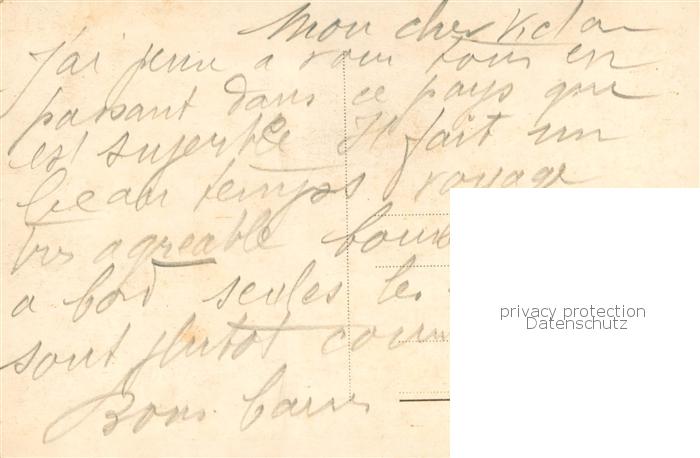 Mon cher Victor
J'ai pensé a vous tous en
passant dans ce pays que
est superbe Il fait un
beau temps voyage
très agreable bonne
a bord seules les
sont plutot cour
Bons baisers
privacy protection
Datenschutz